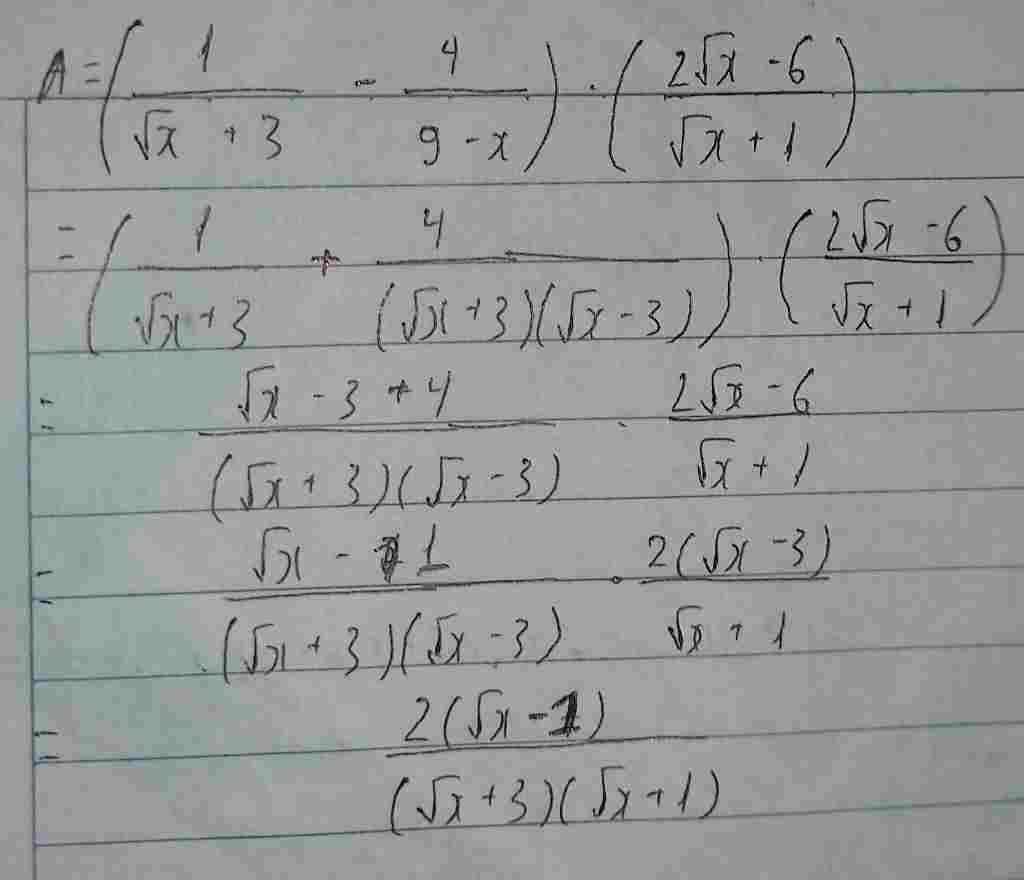 A = (1/(√x + 3) - 4/(9 - x)) · ((2√x - 6)/(√x + 1))
= (1/(√x + 3) + 4/((√x + 3)(√x - 3))) · ((2√x - 6)/(√x + 1))
= (√x - 3 + 4)/((√x + 3)(√x - 3)) · (2√x - 6)/(√x + 1)
= (√x - 1)/((√x + 3)(√x - 3)) · 2(√x - 3)/(√x + 1)
= 2(√x - 1)/((√x + 3)(√x + 1))